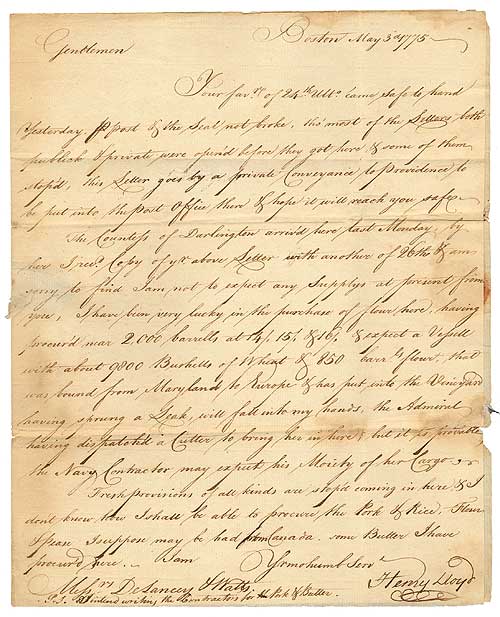 Boston May 3d 1775
Gentlemen
Your favr. of 24th Ulto. came safe to hand
Yesterday p post & the Seal not broke, tho' most of the Letters both
publick & private were open'd before they got here & some of them
stop'd, this Letter goes by a private Conveyance to Providence to
be put into the Post Office there & hope it will reach you safe.
The Countess of Darlington arriv'd here last Monday, by
her I recd. Copy of yr. above Letter with another of 26th & am
sorry to find I am not to expect any Supplys at present from
you, I have been very lucky in the purchase of flour here, having
procur'd near 2,000 barrells at 14/, 15/ & 16/ & expect a Vessell
with about 9800 Bushells of Wheat & 850 barrls. flour, that
was bound from Maryland to Europe & has put into the Vineyard
having sprung a Leak, will fall into my hands, the Admiral
having dispatch'd a Cutter to bring her in here, but it is probable
the Navy Contractor may expect his Moiety of her Cargo
Fresh provisions of all kinds are stop'd coming in here & I
don't know how I shall be able to procure the Pork & Rice. Flour
& pease I suppose may be had from Canada. some Butter I have
procur'd here. I am
Yr most humb Servt.
Henry Lloyd
Messrs. DeLancey & Watts
P.S. I intend writing the Contractors for the Pork & Butter.